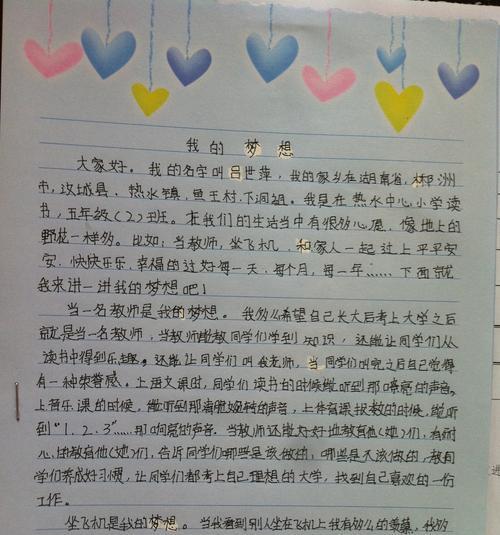 我的 梦想
大家好。我的名字叫吕世萍，我的家乡在湖南省，郴洲
市，汝城县，热水镇，鱼王村，下洞组。我是在热水中心小学读
书，五年级（2）班。在我们的生活当中有很多心愿，像地上的
野花一样多。比如：当教师，坐飞机，和家人一起过上平平安
安，快快乐乐，幸福的过好每一天，每个月，每一年……下面就
我来讲一讲我的梦想吧！
当一名教师是我的梦想。我多么希望自己长大后考上大学之后
就是当一名教师，当教师能教同学们学到知识，还能让同学们从
读书中得到乐趣。还能让同学们叫我老师，当同学们叫完之后自己觉得
有一种荣誉感，上语文课时，同学们读书的时候能听到那嘹亮的声音。
上音乐课的时候，能听到那清脆婉转的声音，上体育课报数的时候，能听
到“1、2、3”……那响亮的声音。当教师还能好好地教育他（她）们，有耐
心的教育他（她）们，告诉同学们哪些是该做的，哪些是不该做的，教同
学们养成好习惯，让同学们都考上自己理想的大学，找到自己喜欢的一份
工作。
坐飞机是我的梦想。当我看到别人坐在飞机上我有多么的羡慕，我多